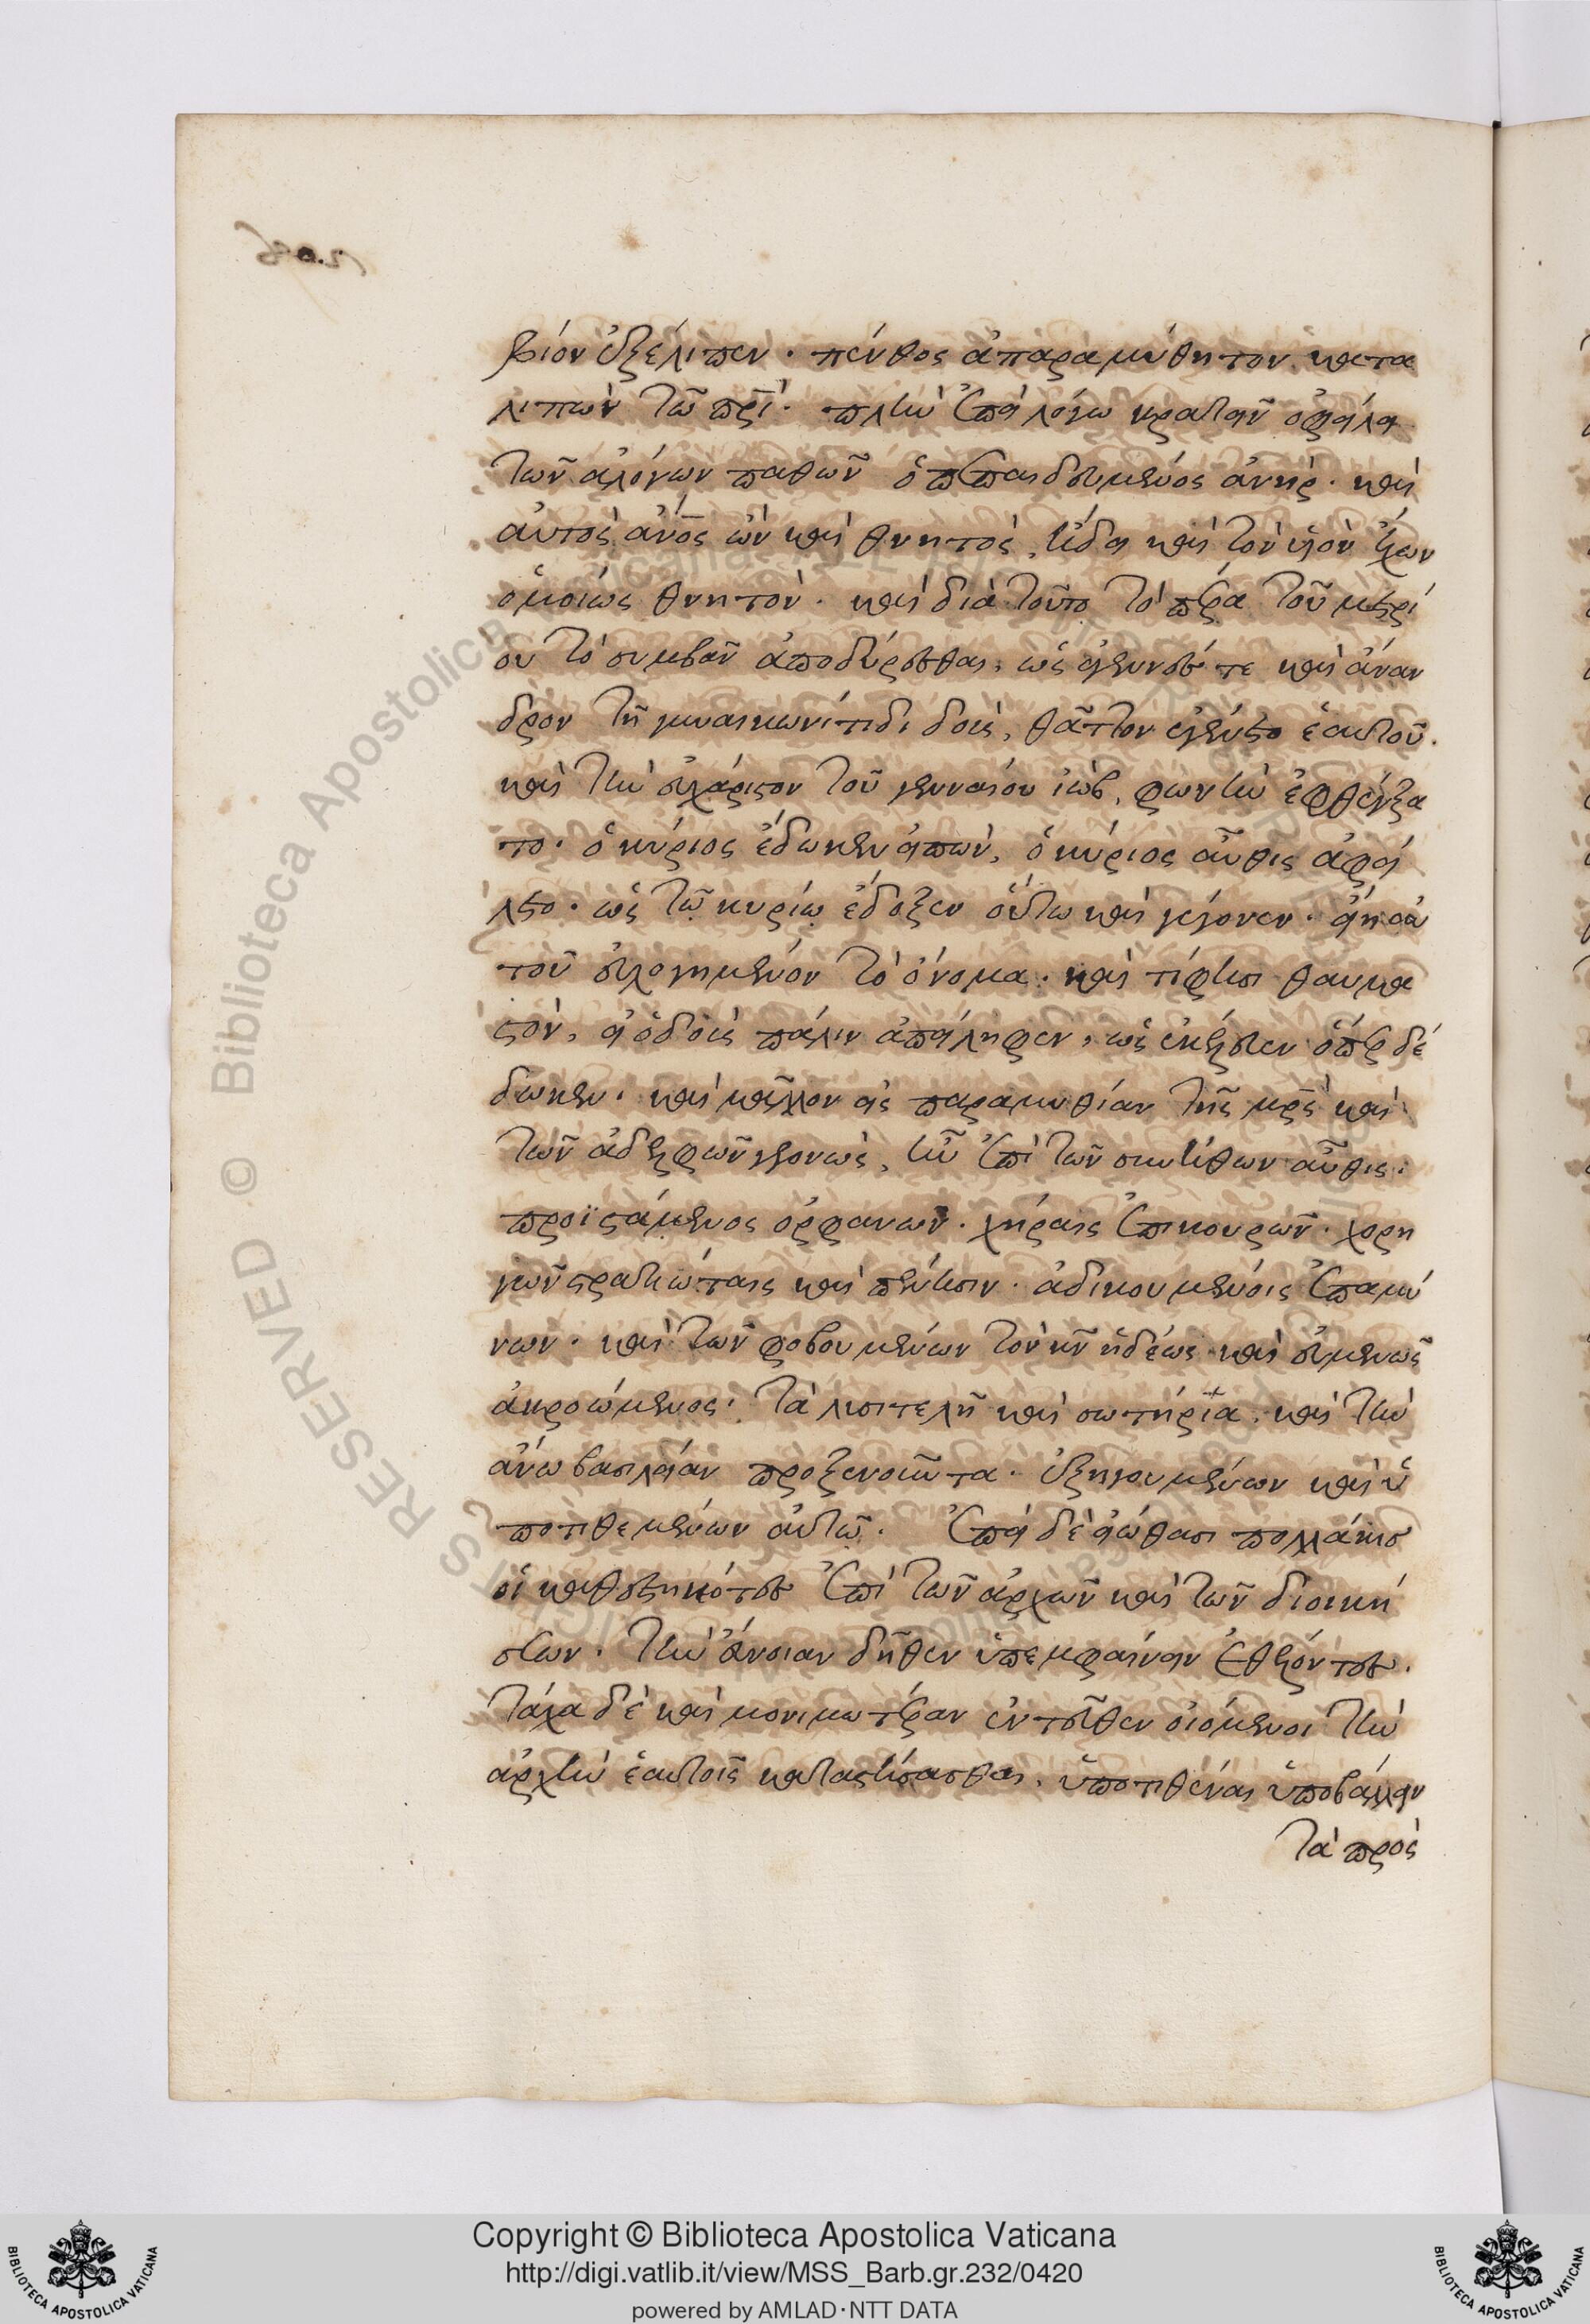 βίον ἐξέλιπεν· πένθος ἀπαραμύθητον κατα
λιπὼν τῶ πρὶ· πλὴν ἐπεὶ λόγω κρατεῖν ὀφείλει
τῶν ἀλόγων παθῶν ὁ πεπαιδευμένος ἀνὴρ· καὶ
αὐτὸς ἄνος ὢν καὶ θνητὸς, ἤδει καὶ τὸν υἱὸν ἔχων
ὁμοίως θνητὸν· καὶ διὰ τοῦτο τὸ πέρα τοῦ μετρί
ου τὸ συμβὰν ἀποδύρεσθαι, ὡς ἀγεννές τε καὶ ἄναν
δρον τῇ γυναικωνίτιδι δοὺς, θᾶττον ἐγένετο ἑαυτοῦ.
καὶ τὴν εὐχάριστον τοῦ γενναίου ἰὼβ, φωνὴν ἐφθέγξα
το· ὁ κύριος ἔδωκεν εἰπὼν, ὁ κύριος αὖθις ἀφεί
λετο· ὡς τῷ κυρίῳ ἔδοξεν οὕτω καὶ γέγονεν· εἴη αὐ
τοῦ εὐλογημένον τὸ ὄνομα· καὶ τί φησι θαυμα
στὸν, εἰ ὁ δοὺς πάλιν ἀπείληφεν, ὡς ἐκέλευσεν ὅπερ δέ
δωκεν· καὶ μᾶλλον εἰς παραμυθίαν τῆς μρς καὶ
τῶν ἀδελφῶν γεγονὼς, ἦν ἐπὶ τῶν συνήθων αὖθις·
προϊστάμενος ὀρφανῶν· χήραις ἐπικουρῶν· χορη
γῶν στρατιώταις καὶ πένησιν· ἀδικουμένοις ἐπαμύ
νων· καὶ τῶν φοβουμένων τὸν κν ἡδέως καὶ εὐμενῶς
ἀκροώμενος· τὰ λυσιτελῆ καὶ σωτήρια, καὶ τὴν
ἄνω βασιλείαν προξενοῦντα· ἐξηγουμένων καὶ ὑ
ποτιθεμένων αὐτῶ· ἐπεὶ δὲ εἰώθασι πολλάκις
οἱ καθεστηκότες ἐπὶ τῶν ἀρχῶν καὶ τῶν διοική
σεων· τὴν εὔνοιαν δῆθεν ὑπεμφαίνειν ἐθέλοντες·
τάχα δὲ καὶ μονιμωτέραν ἐντεῦθεν οἰόμενοι τὴν
ἀρχὴν ἑαυτοῖς καταστήσασθαι, ὑποτιθέναι ὑποβάλλειν
τὰ πρὸς
Copyright © Biblioteca Apostolica Vaticana
http://digi.vatlib.it/view/MSS_Barb.gr.232/0420
powered by AMLAD·NTT DATA
BIBLIOTECA APOSTOLICA VATICANA
BIBLIOTECA APOSTOLICA VATICANA